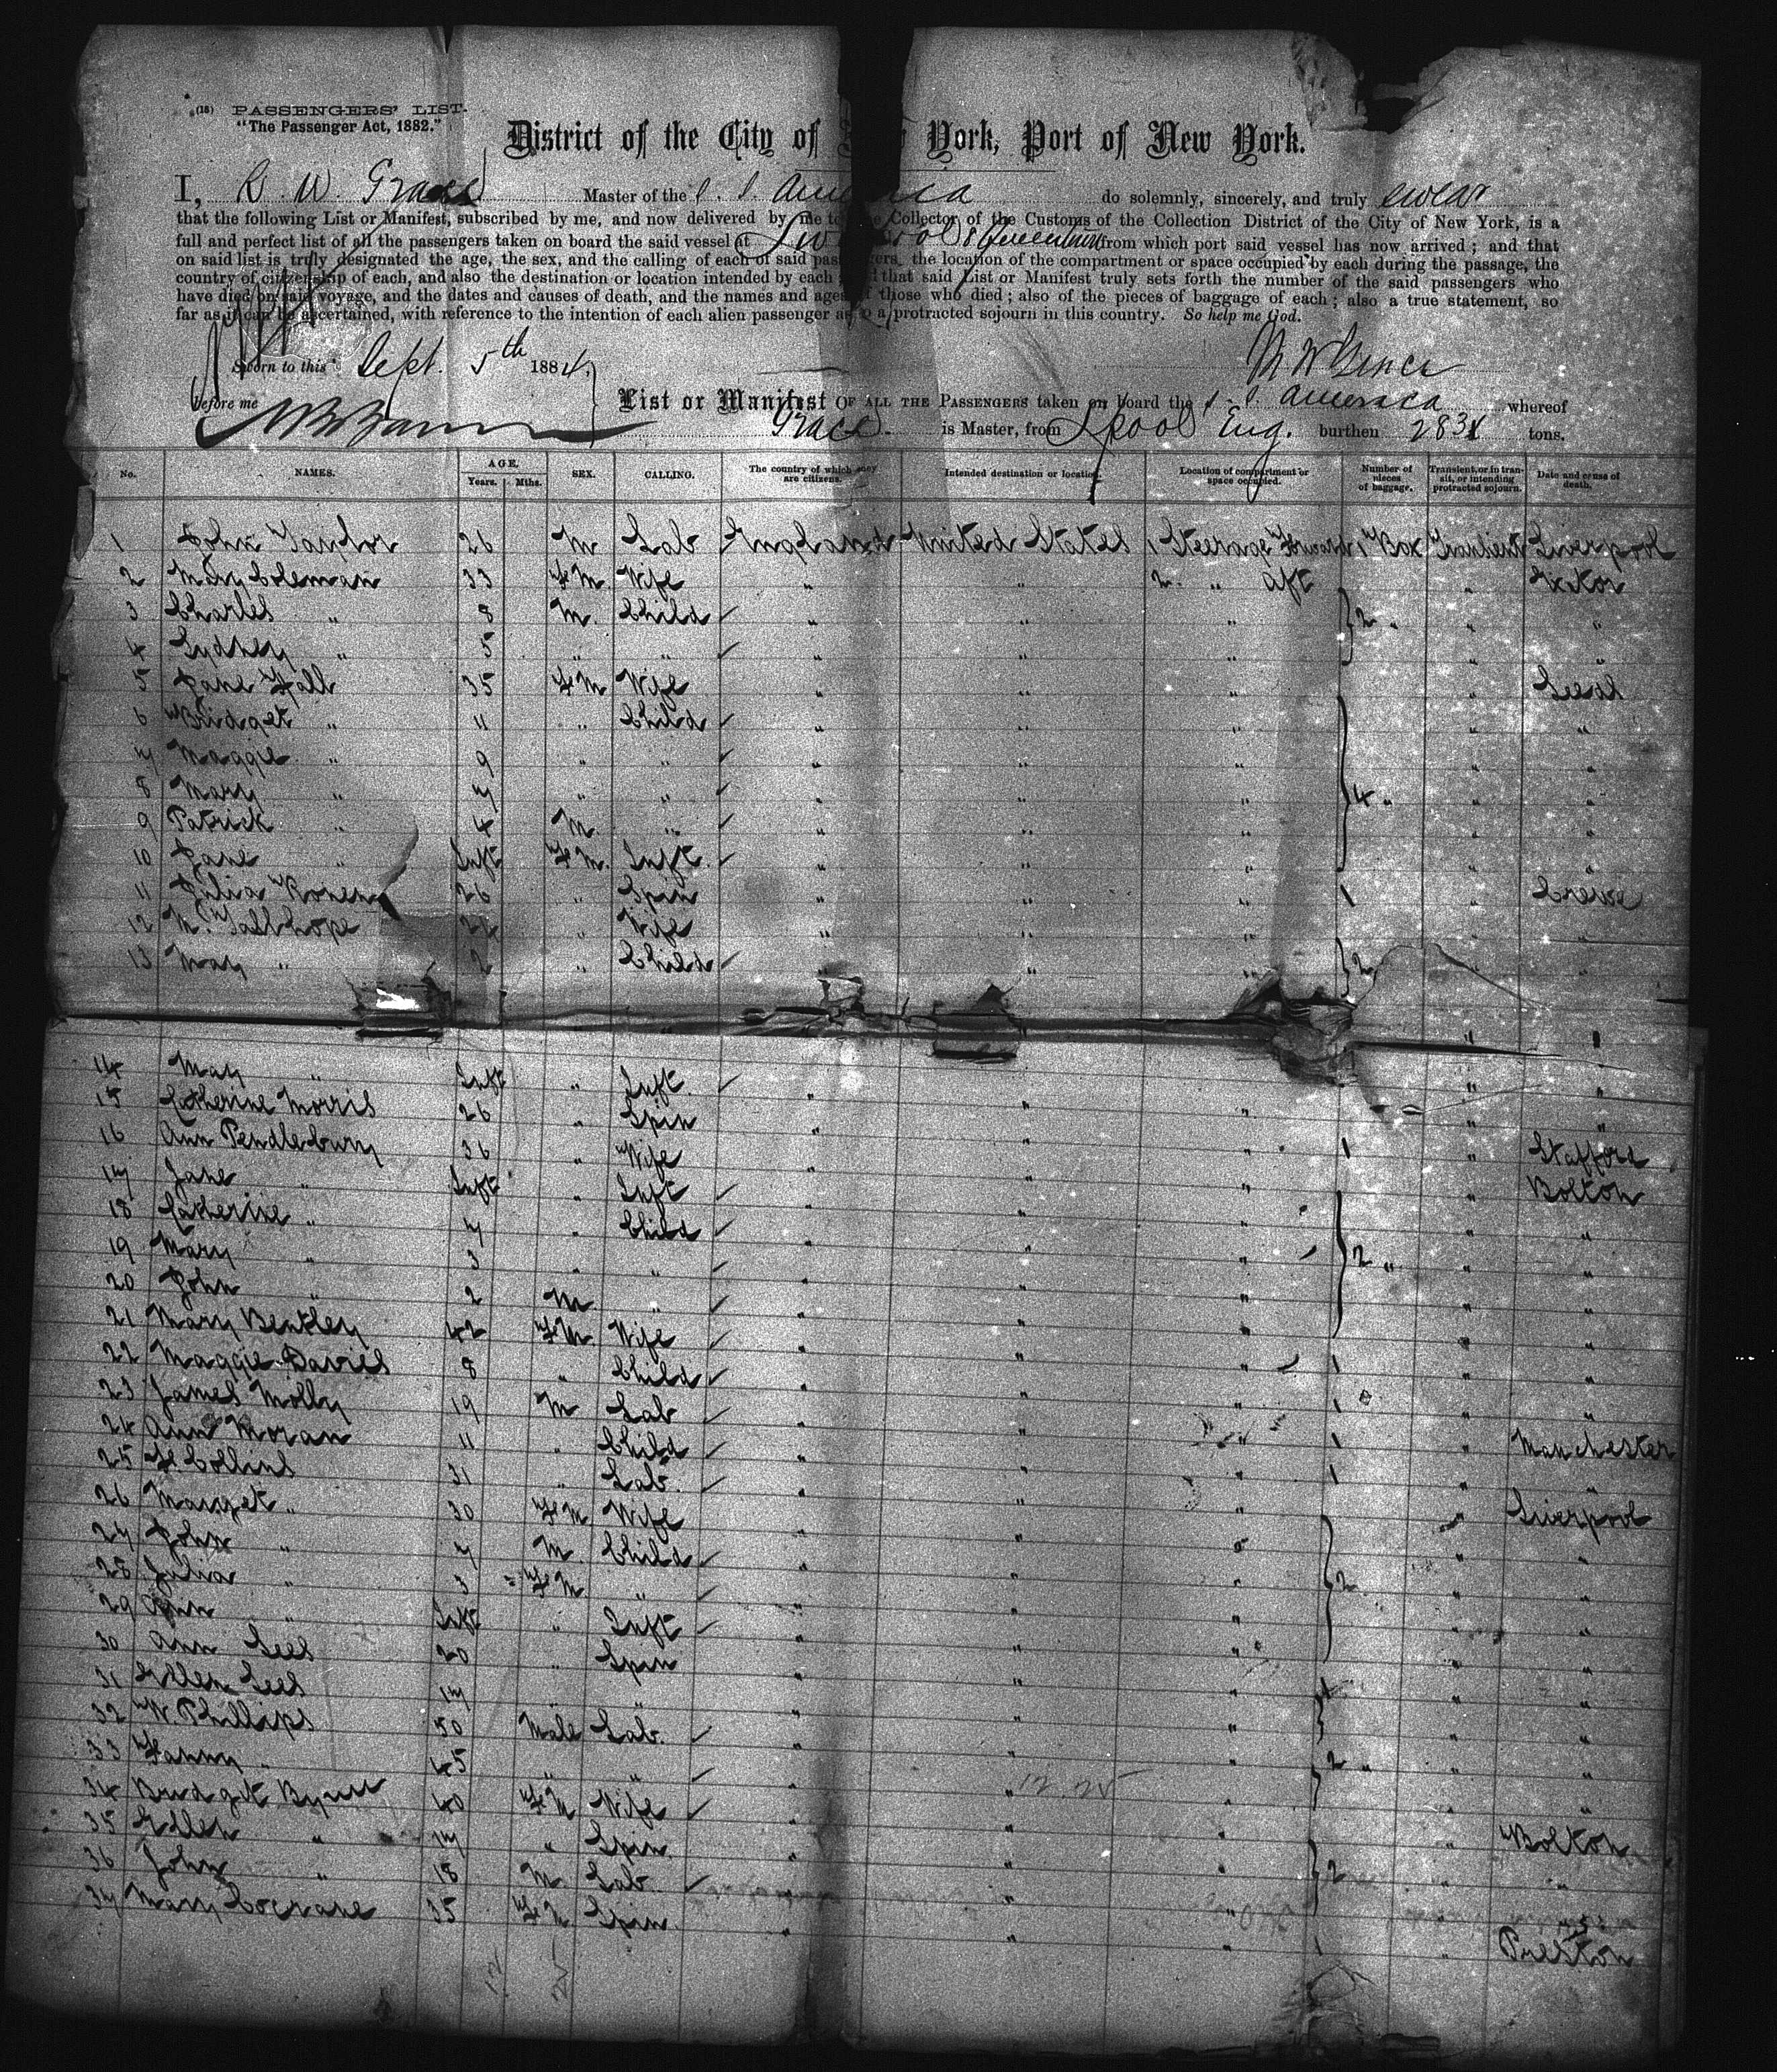 (18) PASSENGERS' LIST.
"The Passenger Act, 1882."
District of the City of York, Port of New York.
I, R. W. Master of the S. S. America do solemnly, sincerely, and truly swear
that the following List or Manifest, subscribed by me, and now delivered by me to Collector of the Customs of the Collection District of the City of New York, is a
full and perfect list of all the passengers taken on board the said vessel at Liverpool & Queenstown from which port said vessel has now arrived; and that
on said list is truly designated the age, the sex, and the calling of each of said passengers, the location of the compartment or space occupied by each during the passage, the
country of citizenship of each, and also the destination or location intended by each that said List or Manifest truly sets forth the number of the said passengers who
have died on said voyage, and the dates and causes of death, and the names and ages of those who died; also of the pieces of baggage of each; also a true statement, so
far as it can be ascertained, with reference to the intention of each alien passenger as to a protracted sojourn in this country. So help me God.
Sworn to this Sept. 5th 1884,
before me
List or Manifest OF ALL THE PASSENGERS taken on board the S. S. America whereof
Grace is Master, from Lpool Eng. burthen tons.
No. NAMES. AGE. Years. Mths. SEX. CALLING. The country of which they are citizens. Intended destination or location. Location of compartment or space occupied. Number of pieces of baggage. Transient, or in transit, or intending protracted sojourn. Date and cause of death.
1 John Taylor 26 M Lab England United States 1 Steerage Forward 1 Box Transient Liverpool
2 Mary Coleman 33 FM. Wife " " 2. " Aft " Exeter
3 Charles " 8 M. Child " " " } 2 " " "
4 Sydney " 5 " " " " " " "
5 Jane Hall 35 FM Wife " " " " Leeds
6 Bridget " 11 " Child " " " " "
7 Maggie " 9 " " " " " " "
8 Mary " 7 " " " " " } 4 " " "
9 Patrick " 4 M " " " " " "
10 Jane " Inft FM. Inft. " " " " "
11 Julia 26 " Spin " " " 1 " Crewe
12 M. " Wife " " " " "
13 May " 2 " Child " " " } 2 " "
14 May " Inft " Inft. " "
15 Catherine Morris 26 " Spin " " " " "
16 Ann Pendlebury 36 " Wife " " " 1 " Stafford
17 Jane " Inft " Inft " " " " Bolton
18 Catherine " 7 " Child " " " " "
19 Mary " 3 " " " " " } 2 " " "
20 John " 2 M " " " " " "
21 Mary Bentley 42 FM. Wife " " " " "
22 Maggie Davies 8 " Child " " " 1 " "
23 James Molly 19 M Lab " " " 1 " "
24 Ann Moran 11 " Child " " " 1 " Manchester
25 Collins 31 " Lab. " " " 1 " "
26 Marget " 30 FM Wife " " " " Liverpool
27 John " 7 M. Child " " " " "
28 Julia " 3 FM " " " " } 2 " "
29 Ann " Inft " Inft " " " " "
30 Ann Lees 20 " Spin " " " " "
31 Ellen Lees 17 " " " " " " "
32 W. Phillips 50 Male Lab. " " " " "
33 Fanny " 45 " " " " " } 2 " " "
34 Bridget Byrne 40 FM Wife " " " " "
35 Ellen " 17 " Spin. " " " " Bolton
36 John " 18 M Lab. " " " } 2 " "
37 Mary Cocrane 35 FM Spin. " " " 1 " Preston
12 25
12 25